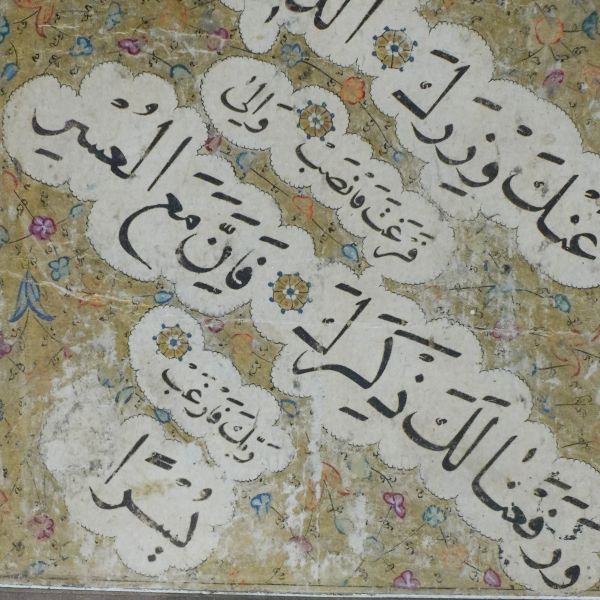 عَنْكَ وِزْرَكَ
وَرَفَعْنَا لَكَ ذِكْرَكَ فَاِنَّ مَعَ الْعُسْرِ
يُسْرًا
فَرَغْتَ فَانْصَبْ وَاِلٰى
رَبِّكَ فَارْغَبْ